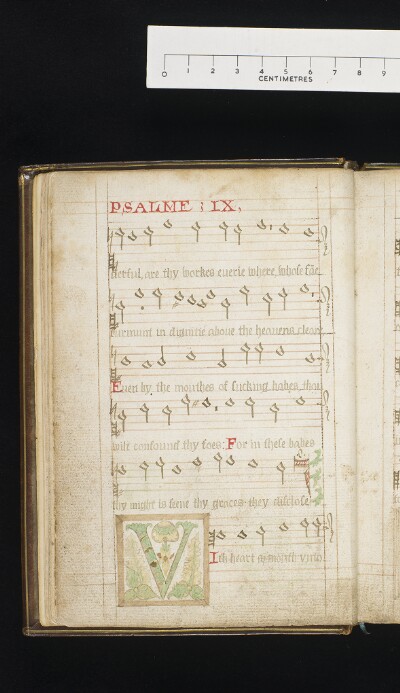 0 1 2 3 4 5 6 7 8 9
CENTIMETRES
PSALME : IX,
derful, are thy workes euerie where, whose fãe
surmunt in dignitie aboue the heavens cleare
Euen by the mouthes of sucking babes, thou
wilt confound thy foes: For in these babes
thy might is seene thy graces they disclose
V
Ith heart & mouth vnto